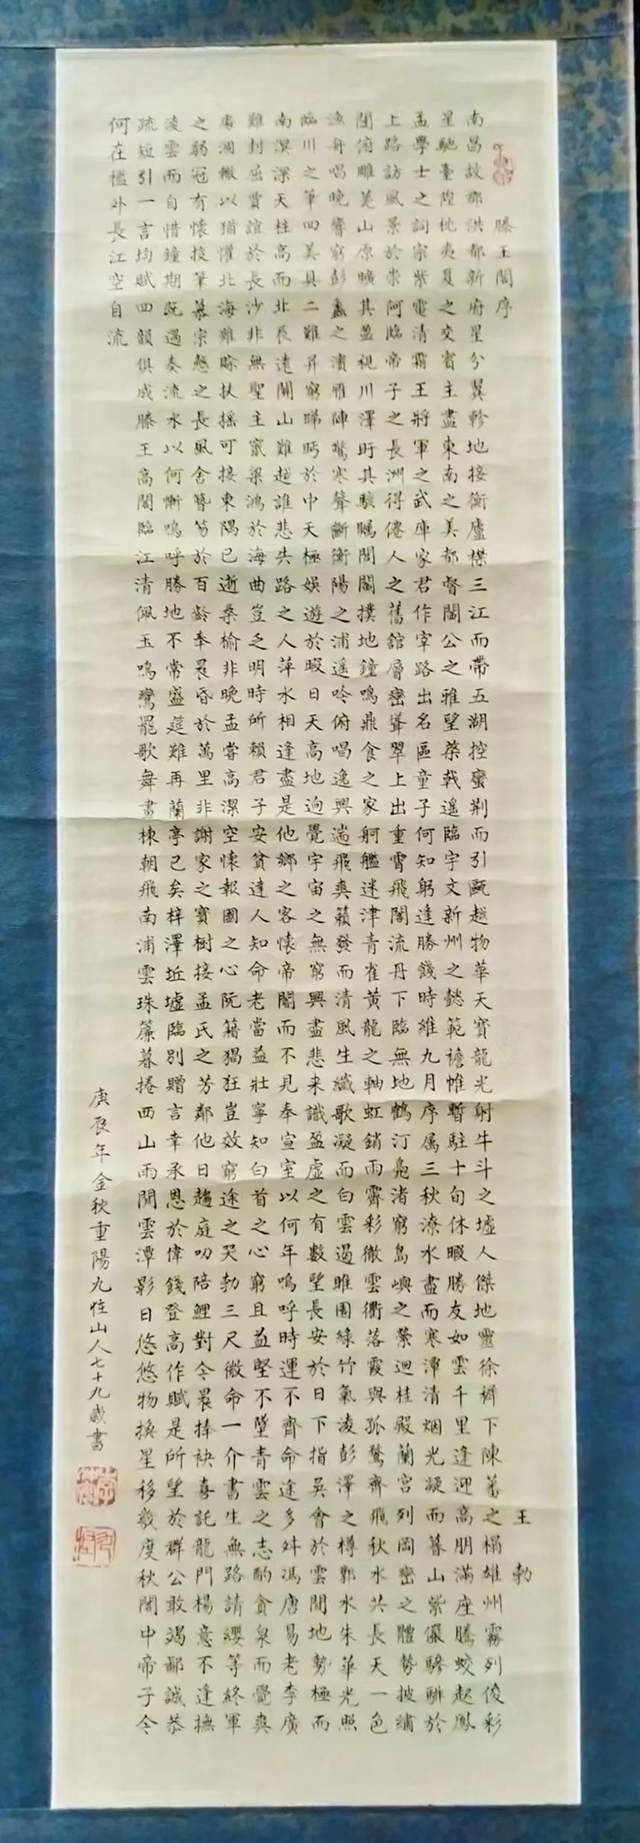 滕王閣序 王勃
南昌故郡洪都新府星分翼軫地接衡廬襟三江而帶五湖控蠻荆而引甌越物華天寶龍光射牛斗之墟人傑地靈徐孺下陳蕃之榻雄州霧列俊彩
星馳臺隍枕夷夏之交賓主盡東南之美都督閻公之雅望棨戟遥臨宇文新州之懿範襜帷暫駐十旬休暇勝友如雲千里逢迎高朋滿座騰蛟起鳳
孟學士之詞宗紫電清霜王將軍之武庫家君作宰路出名區童子何知躬逢勝餞時維九月序属三秋潦水盡而寒潭清烟光凝而暮山紫儼驂騑於
上路訪風景於崇阿臨帝子之長洲得僊人之舊舘層巒聳翠上出重霄飛閣流丹下臨無地鶴汀鳧渚窮島嶼之縈迴桂殿蘭宮列岡巒之體勢披繡
闥俯雕甍山原曠其盈視川澤盱其駭矚閭閻撲地鐘鳴鼎食之家舸艦迷津青雀黃龍之軸虹銷雨霽彩徹雲衢落霞與孤鶩齊飛秋水共長天一色
漁舟唱晚響窮彭蠡之濱雁陣驚寒聲斷衡陽之浦遥吟俯唱逸興遄飛爽籟發而清風生纖歌凝而白雲遏睢園綠竹氣淩彭澤之樽鄴水朱華光照
臨川之筆四美具二難并窮睇眄於中天極娛遊於暇日天高地迥覺宇宙之無窮興盡悲来識盈虛之有數望長安於日下指吳會於雲間地勢極而
南溟深天柱高而北辰遠關山難越誰悲失路之人萍水相逢盡是他鄉之客懷帝閽而不見奉宣室以何年嗚呼時運不齊命途多舛馮唐易老李廣
難封屈賈誼於長沙非無聖主竄梁鴻於海曲豈乏明時所賴君子安貧達人知命老當益壯寧知白首之心窮且益堅不墜青雲之志酌貪泉而覺爽
處涸轍以猶懽北海雖賒扶搖可接東隅已逝桑榆非晚孟嘗高潔空懷報國之心阮籍猖狂豈效窮途之哭勃三尺微命一介書生無路請纓等終軍
之弱冠有懷投筆慕宗愨之長風舍簪笏於百齡奉晨昏於萬里非謝家之寶樹接孟氏之芳鄰他日趨庭叨陪鯉對今晨捧袂喜託龍門楊意不逢撫
凌雲而自惜鍾期既遇奏流水以何慚嗚呼勝地不常盛筵難再蘭亭已矣梓澤坵墟臨别贈言幸承恩於偉餞登高作賦是所望於群公敢竭鄙誠恭
疏短引一言均賦四韻俱成滕王高閣臨江渚佩玉鳴鸞罷歌舞畫棟朝飛南浦雲珠簾暮捲西山雨閒雲潭影日悠悠物換星移幾度秋閣中帝子今
何在檻外長江空自流
庚辰年金秋重陽九住山人七十九歲書